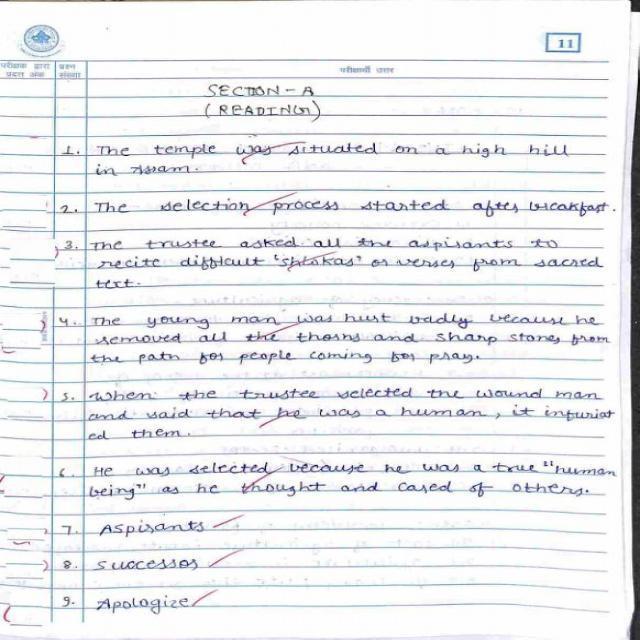 11
परीक्षक द्वारा प्रदत्त अंक
प्रश्न संख्या
परीक्षार्थी उत्तर
SECTION-A
(READING)
1. The temple was situated on a high hill
in Assam.
2. The selection process started after breakfast.
3. The trustee asked all the aspirants to
recite difficult 'shlokas' or verses from sacred
text.
4. The young man was hurt badly because he
removed all the thorns and sharp stones from
the path for people coming for pray.
5. When the trustee selected the wound man
and said that he was a human, it infuriat
ed them.
6. He was selected because he was a true "human
being" as he thought and cared of others.
7. Aspirants
8. Successor
9. Apologize